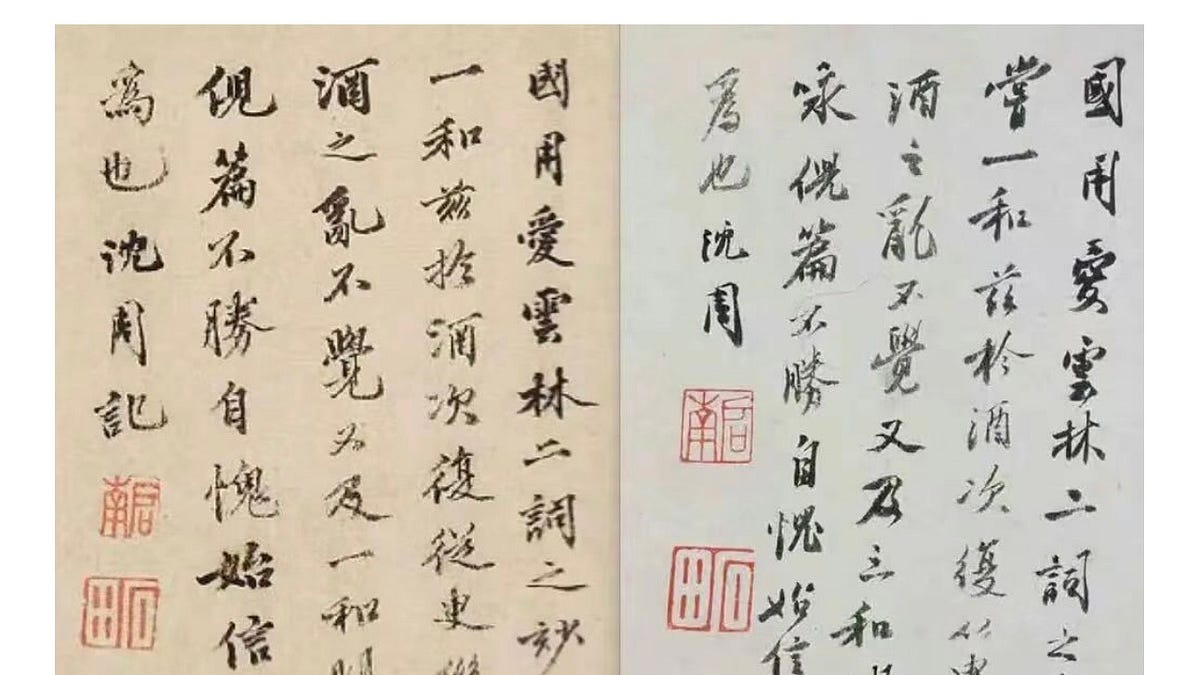 國用愛雲林二詞之
嘗一和茲於酒次復從
酒之亂不覺又及三和
咏倪篇不勝自愧始信
為也沈周
啟南
石田
國用愛雲林二詞之妙
一和茲於酒次復從叟
酒之亂不覺又及一和
倪篇不勝自愧始信
為也沈周記
啟南
石田